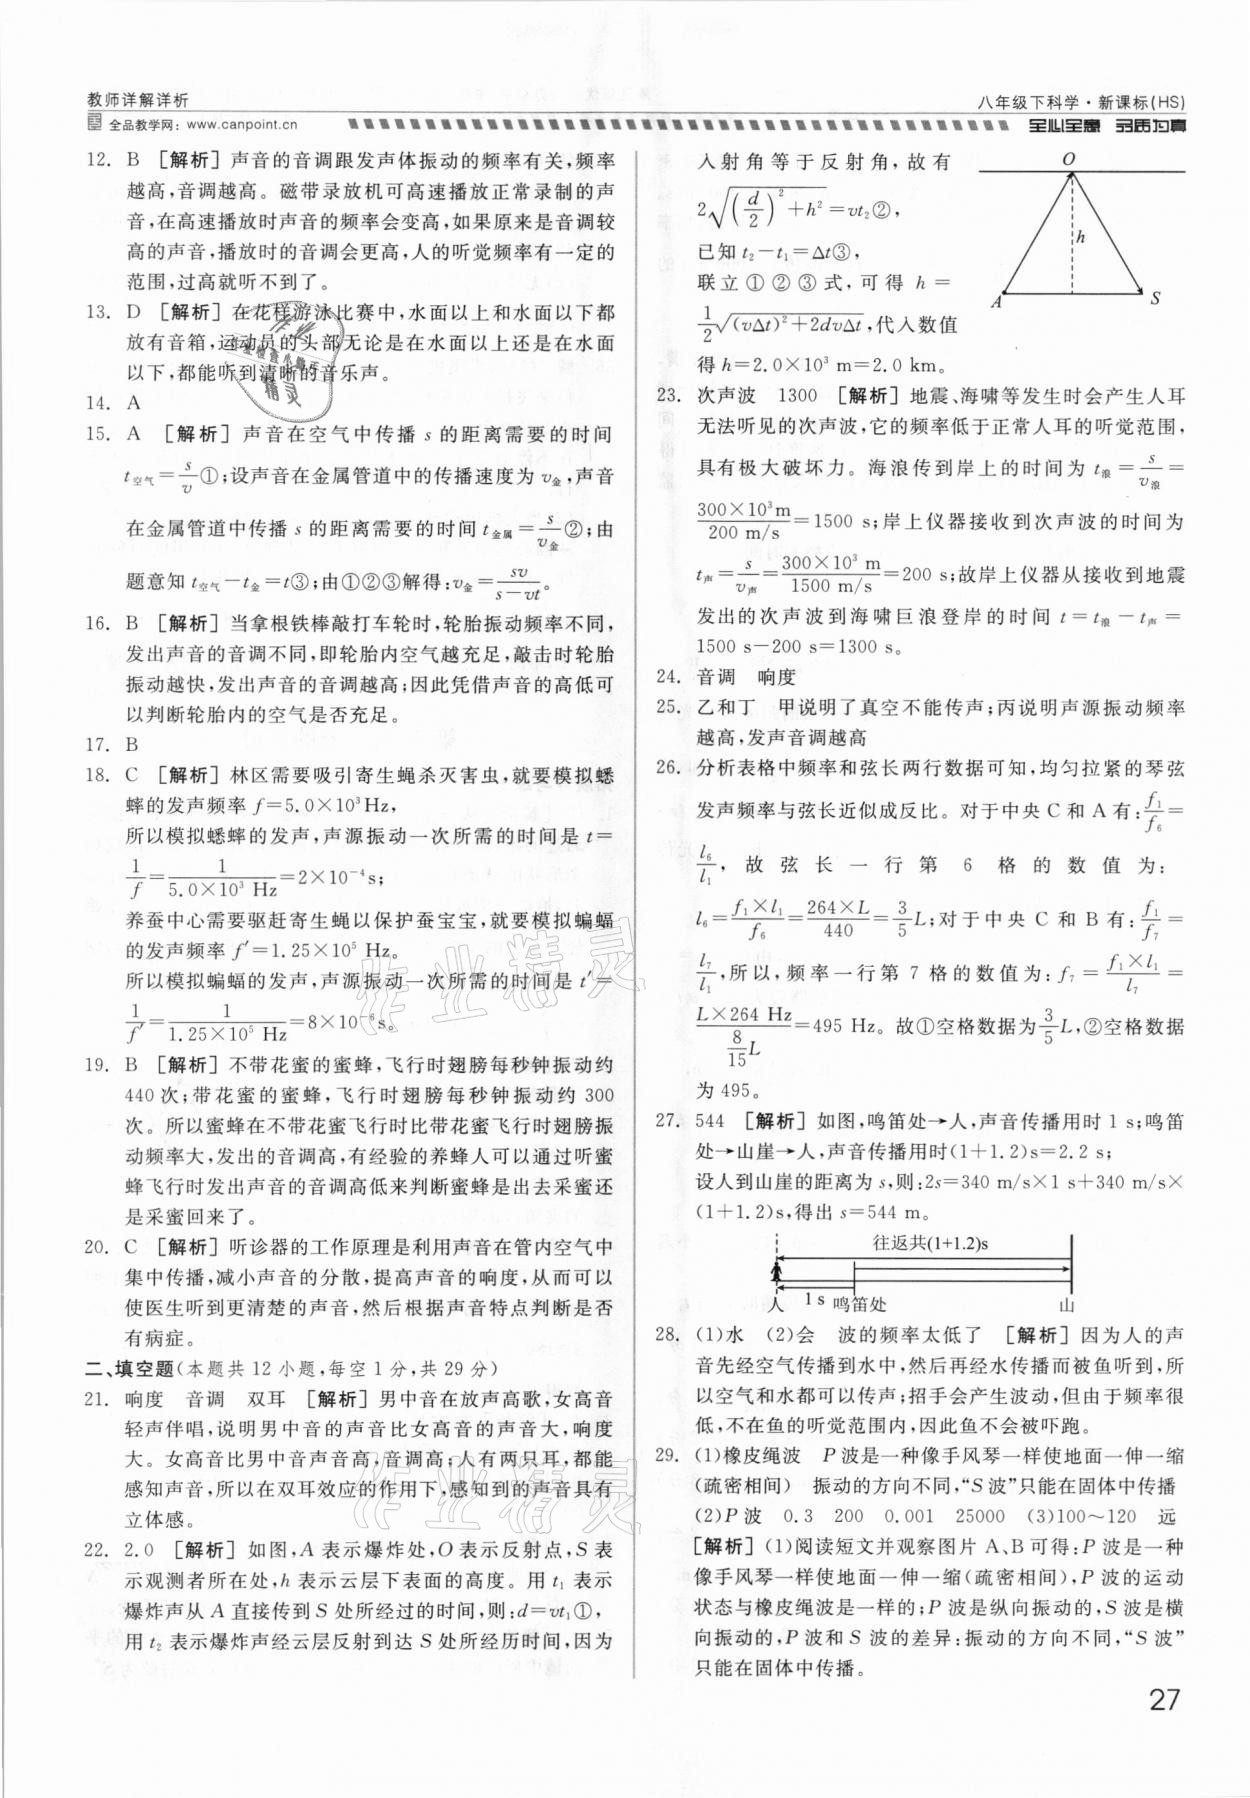 教师详解详析
八年级下科学·新课标(HS)
全品教学网：www.canpoint.cn
全心全意 名质为真
12. B [解析] 声音的音调跟发声体振动的频率有关,频率
越高,音调越高。磁带录放机可高速播放正常录制的声
音,在高速播放时声音的频率会变高,如果原来是音调较
高的声音,播放时的音调会更高,人的听觉频率有一定的
范围,过高就听不到了。
13. D [解析] 在花样游泳比赛中,水面以上和水面以下都
放有音箱,运动员的头部无论是在水面以上还是在水面
以下,都能听到清晰的音乐声。
14. A
15. A [解析] 声音在空气中传播 s 的距离需要的时间
t空气=s/v①;设声音在金属管道中的传播速度为 v金,声音
在金属管道中传播 s 的距离需要的时间 t金属=s/v金②;由
题意知 t空气-t金=t③;由①②③解得:v金=sv/(s-vt)。
16. B [解析] 当拿根铁棒敲打车轮时,轮胎振动频率不同,
发出声音的音调不同,即轮胎内空气越充足,敲击时轮胎
振动越快,发出声音的音调越高;因此凭借声音的高低可
以判断轮胎内的空气是否充足。
17. B
18. C [解析] 林区需要吸引寄生蝇杀灭害虫,就要模拟蟋
蟀的发声频率 f=5.0×10³Hz,
所以模拟蟋蟀的发声,声源振动一次所需的时间是 t=
1/f=1/(5.0×10³ Hz)=2×10⁻⁴s;
养蚕中心需要驱赶寄生蝇以保护蚕宝宝,就要模拟蝙蝠
的发声频率 f′=1.25×10⁵ Hz。
所以模拟蝙蝠的发声,声源振动一次所需的时间是 t′=
1/f′=1/(1.25×10⁵ Hz)=8×10⁻⁶s。
19. B [解析] 不带花蜜的蜜蜂,飞行时翅膀每秒钟振动约
440次;带花蜜的蜜蜂,飞行时翅膀每秒钟振动约 300
次。所以蜜蜂在不带花蜜飞行时比带花蜜飞行时翅膀振
动频率大,发出的音调高,有经验的养蜂人可以通过听蜜
蜂飞行时发出声音的音调高低来判断蜜蜂是出去采蜜还
是采蜜回来了。
20. C [解析] 听诊器的工作原理是利用声音在管内空气中
集中传播,减小声音的分散,提高声音的响度,从而可以
使医生听到更清楚的声音,然后根据声音特点判断是否
有病症。
二、填空题(本题共12小题,每空1分,共29分)
21. 响度 音调 双耳 [解析] 男中音在放声高歌,女高音
轻声伴唱,说明男中音的声音比女高音的声音大,响度
大。女高音比男中音声音高,音调高;人有两只耳,都能
感知声音,所以在双耳效应的作用下,感知到的声音具有
立体感。
22. 2.0 [解析] 如图,A 表示爆炸处,O 表示反射点,S 表
示观测者所在处,h 表示云层下表面的高度。用 t₁ 表示
爆炸声从 A 直接传到 S 处所经过的时间,则:d=vt₁①,
用 t₂ 表示爆炸声经云层反射到达 S 处所经历时间,因为
入射角等于反射角,故有
2√((d/2)²+h²)=vt₂②,
已知 t₂-t₁=Δt③,
联立①②③式,可得 h=
1/2√((vΔt)²+2dvΔt),代入数值
得 h=2.0×10³ m=2.0 km。
O
h
A
S
23. 次声波 1300 [解析] 地震、海啸等发生时会产生人耳
无法听见的次声波,它的频率低于正常人耳的听觉范围,
具有极大破坏力。海浪传到岸上的时间为 t浪=s/v浪=
300×10³m/200 m/s=1500 s;岸上仪器接收到次声波的时间为
t声=s/v声=300×10³ m/1500 m/s=200 s;故岸上仪器从接收到地震
发出的次声波到海啸巨浪登岸的时间 t=t浪-t声=
1500 s-200 s=1300 s。
24. 音调 响度
25. 乙和丁 甲说明了真空不能传声;丙说明声源振动频率
越高,发声音调越高
26. 分析表格中频率和弦长两行数据可知,均匀拉紧的琴弦
发声频率与弦长近似成反比。对于中央 C 和 A 有:f₁/f₆=
l₆/l₁,故弦长一行第 6 格的数值为:
l₆=f₁×l₁/f₆=264×L/440=3/5L;对于中央 C 和 B 有:f₁/f₇=
l₇/l₁,所以,频率一行第 7 格的数值为:f₇=f₁×l₁/l₇=
L×264 Hz/(8/15L)=495 Hz。故①空格数据为3/5L,②空格数据
为 495。
27. 544 [解析] 如图,鸣笛处→人,声音传播用时 1 s;鸣笛
处→山崖→人,声音传播用时(1+1.2)s=2.2 s;
设人到山崖的距离为 s,则:2s=340 m/s×1 s+340 m/s×
(1+1.2)s,得出 s=544 m。
往返共(1+1.2)s
1 s
人
鸣笛处
山
28. (1)水 (2)会 波的频率太低了 [解析] 因为人的声
音先经空气传播到水中,然后再经水传播而被鱼听到,所
以空气和水都可以传声;招手会产生波动,但由于频率很
低,不在鱼的听觉范围内,因此鱼不会被吓跑。
29. (1)橡皮绳波 P 波是一种像手风琴一样使地面一伸一缩
(疏密相间) 振动的方向不同,“S 波”只能在固体中传播
(2)P 波 0.3 200 0.001 25000 (3)100~120 远
[解析] (1)阅读短文并观察图片 A、B 可得:P 波是一种
像手风琴一样使地面一伸一缩(疏密相间),P 波的运动
状态与橡皮绳波是一样的;P 波是纵向振动的,S 波是横
向振动的,P 波和 S 波的差异:振动的方向不同,“S 波”
只能在固体中传播。
27
作业精灵
作业精灵